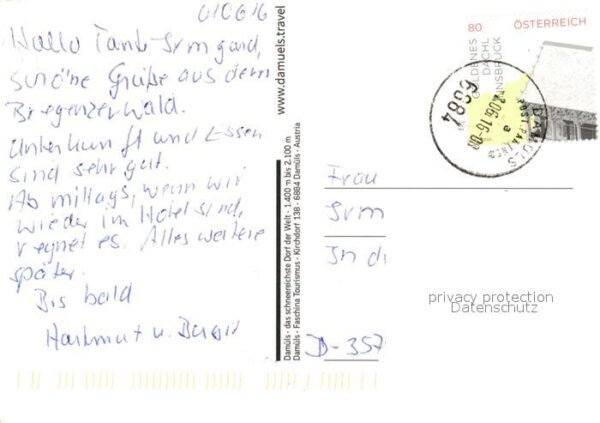 010616
Hallo Tante Irmgard,
schöne Grüße aus dem
Bregenzerwald.
Unterkunft und Essen
sind sehr gut.
Ab mittags, wenn wir
wieder im Hotel sind,
regnet es. Alles weitere
später.
Bis bald
Hartmut u.
www.damuels.travel
Damüls - das schneereichste Dorf der Welt - 1.400 m bis 2.100 m
Damüls - Faschina Tourismus - Kirchdorf 138 - 6884 Damüls - Austria
80 ÖSTERREICH
GOLDENES
DACHL
INNSBRUCK
6884
DAMÜLS
a
Frau
Irm
In di
D-357
privacy protection
Datenschutz